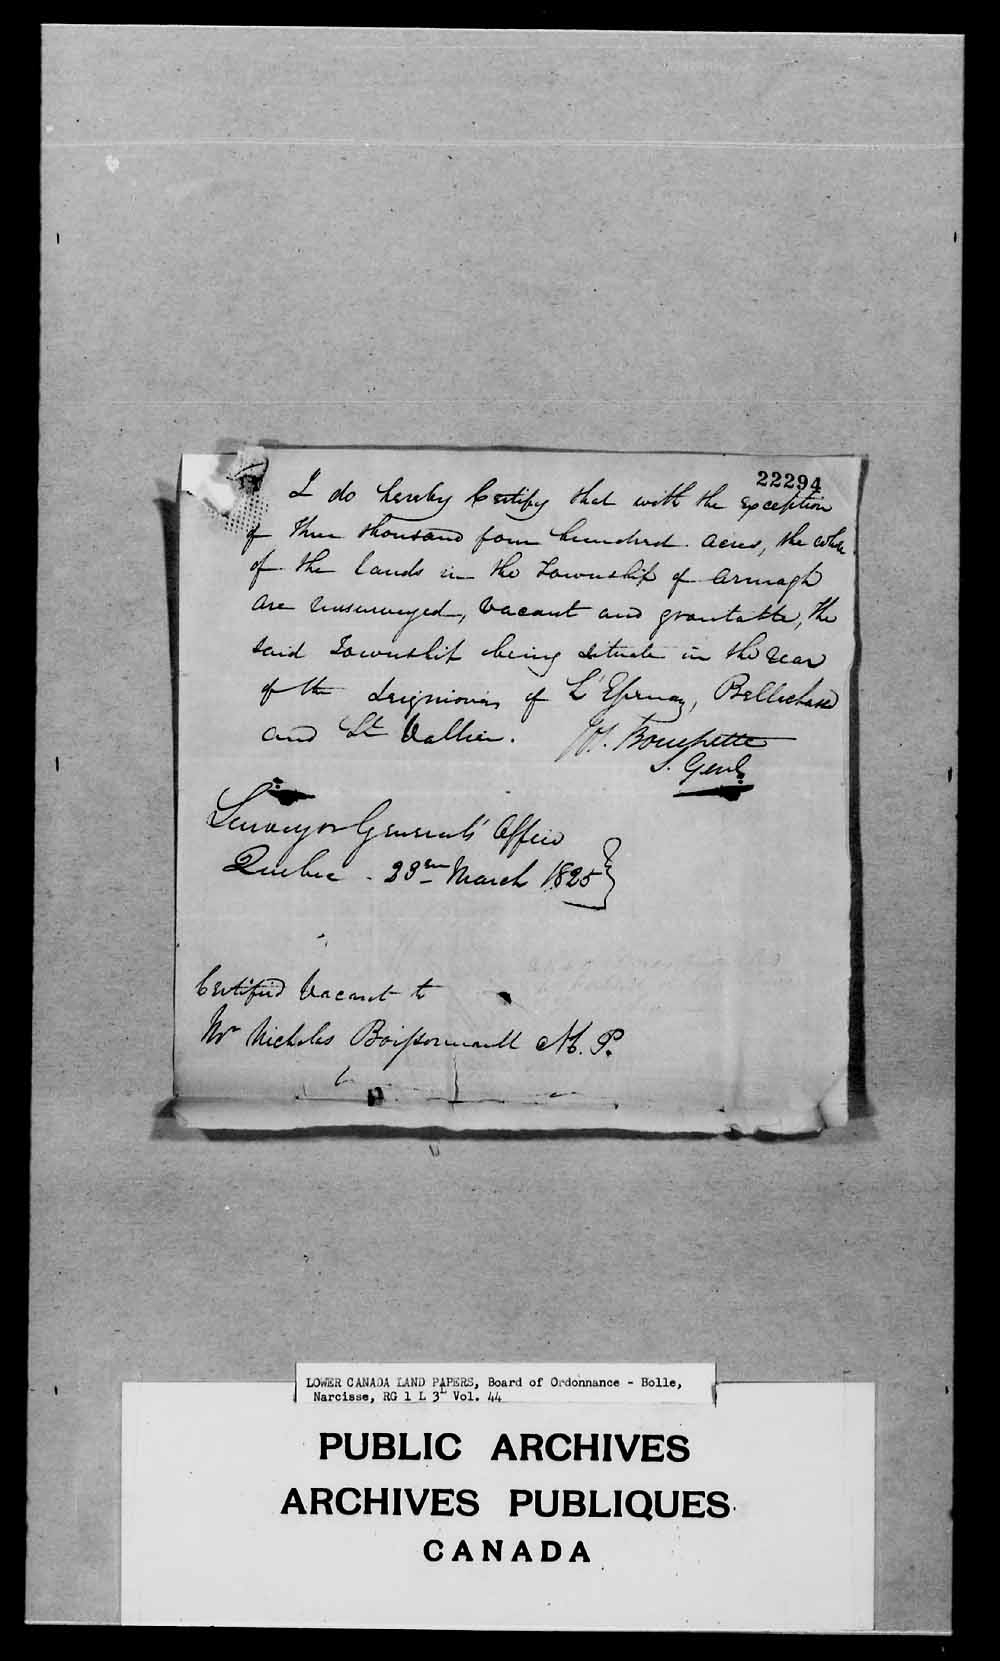 22294
I do hereby Certify that with the exception
of three thousand four hundred acres, the whole
of the lands in the Township of Armagh
are unsurveyed, vacant and grantable, the
said Township being situate in the rear
of the Seigniories of L'Epinay, Bellechasse
and St Vallier. Jos. Bouchette
S. Genl.
Surveyor General's Office
Quebec - 23rd March 1825
Certified Vacant to
Mr Nicholas Boissonnault M. P.
LOWER CANADA LAND PAPERS, Board of Ordonnance - Bolle,
Narcisse, RG 1 L 3L Vol. 44
PUBLIC ARCHIVES
ARCHIVES PUBLIQUES
CANADA